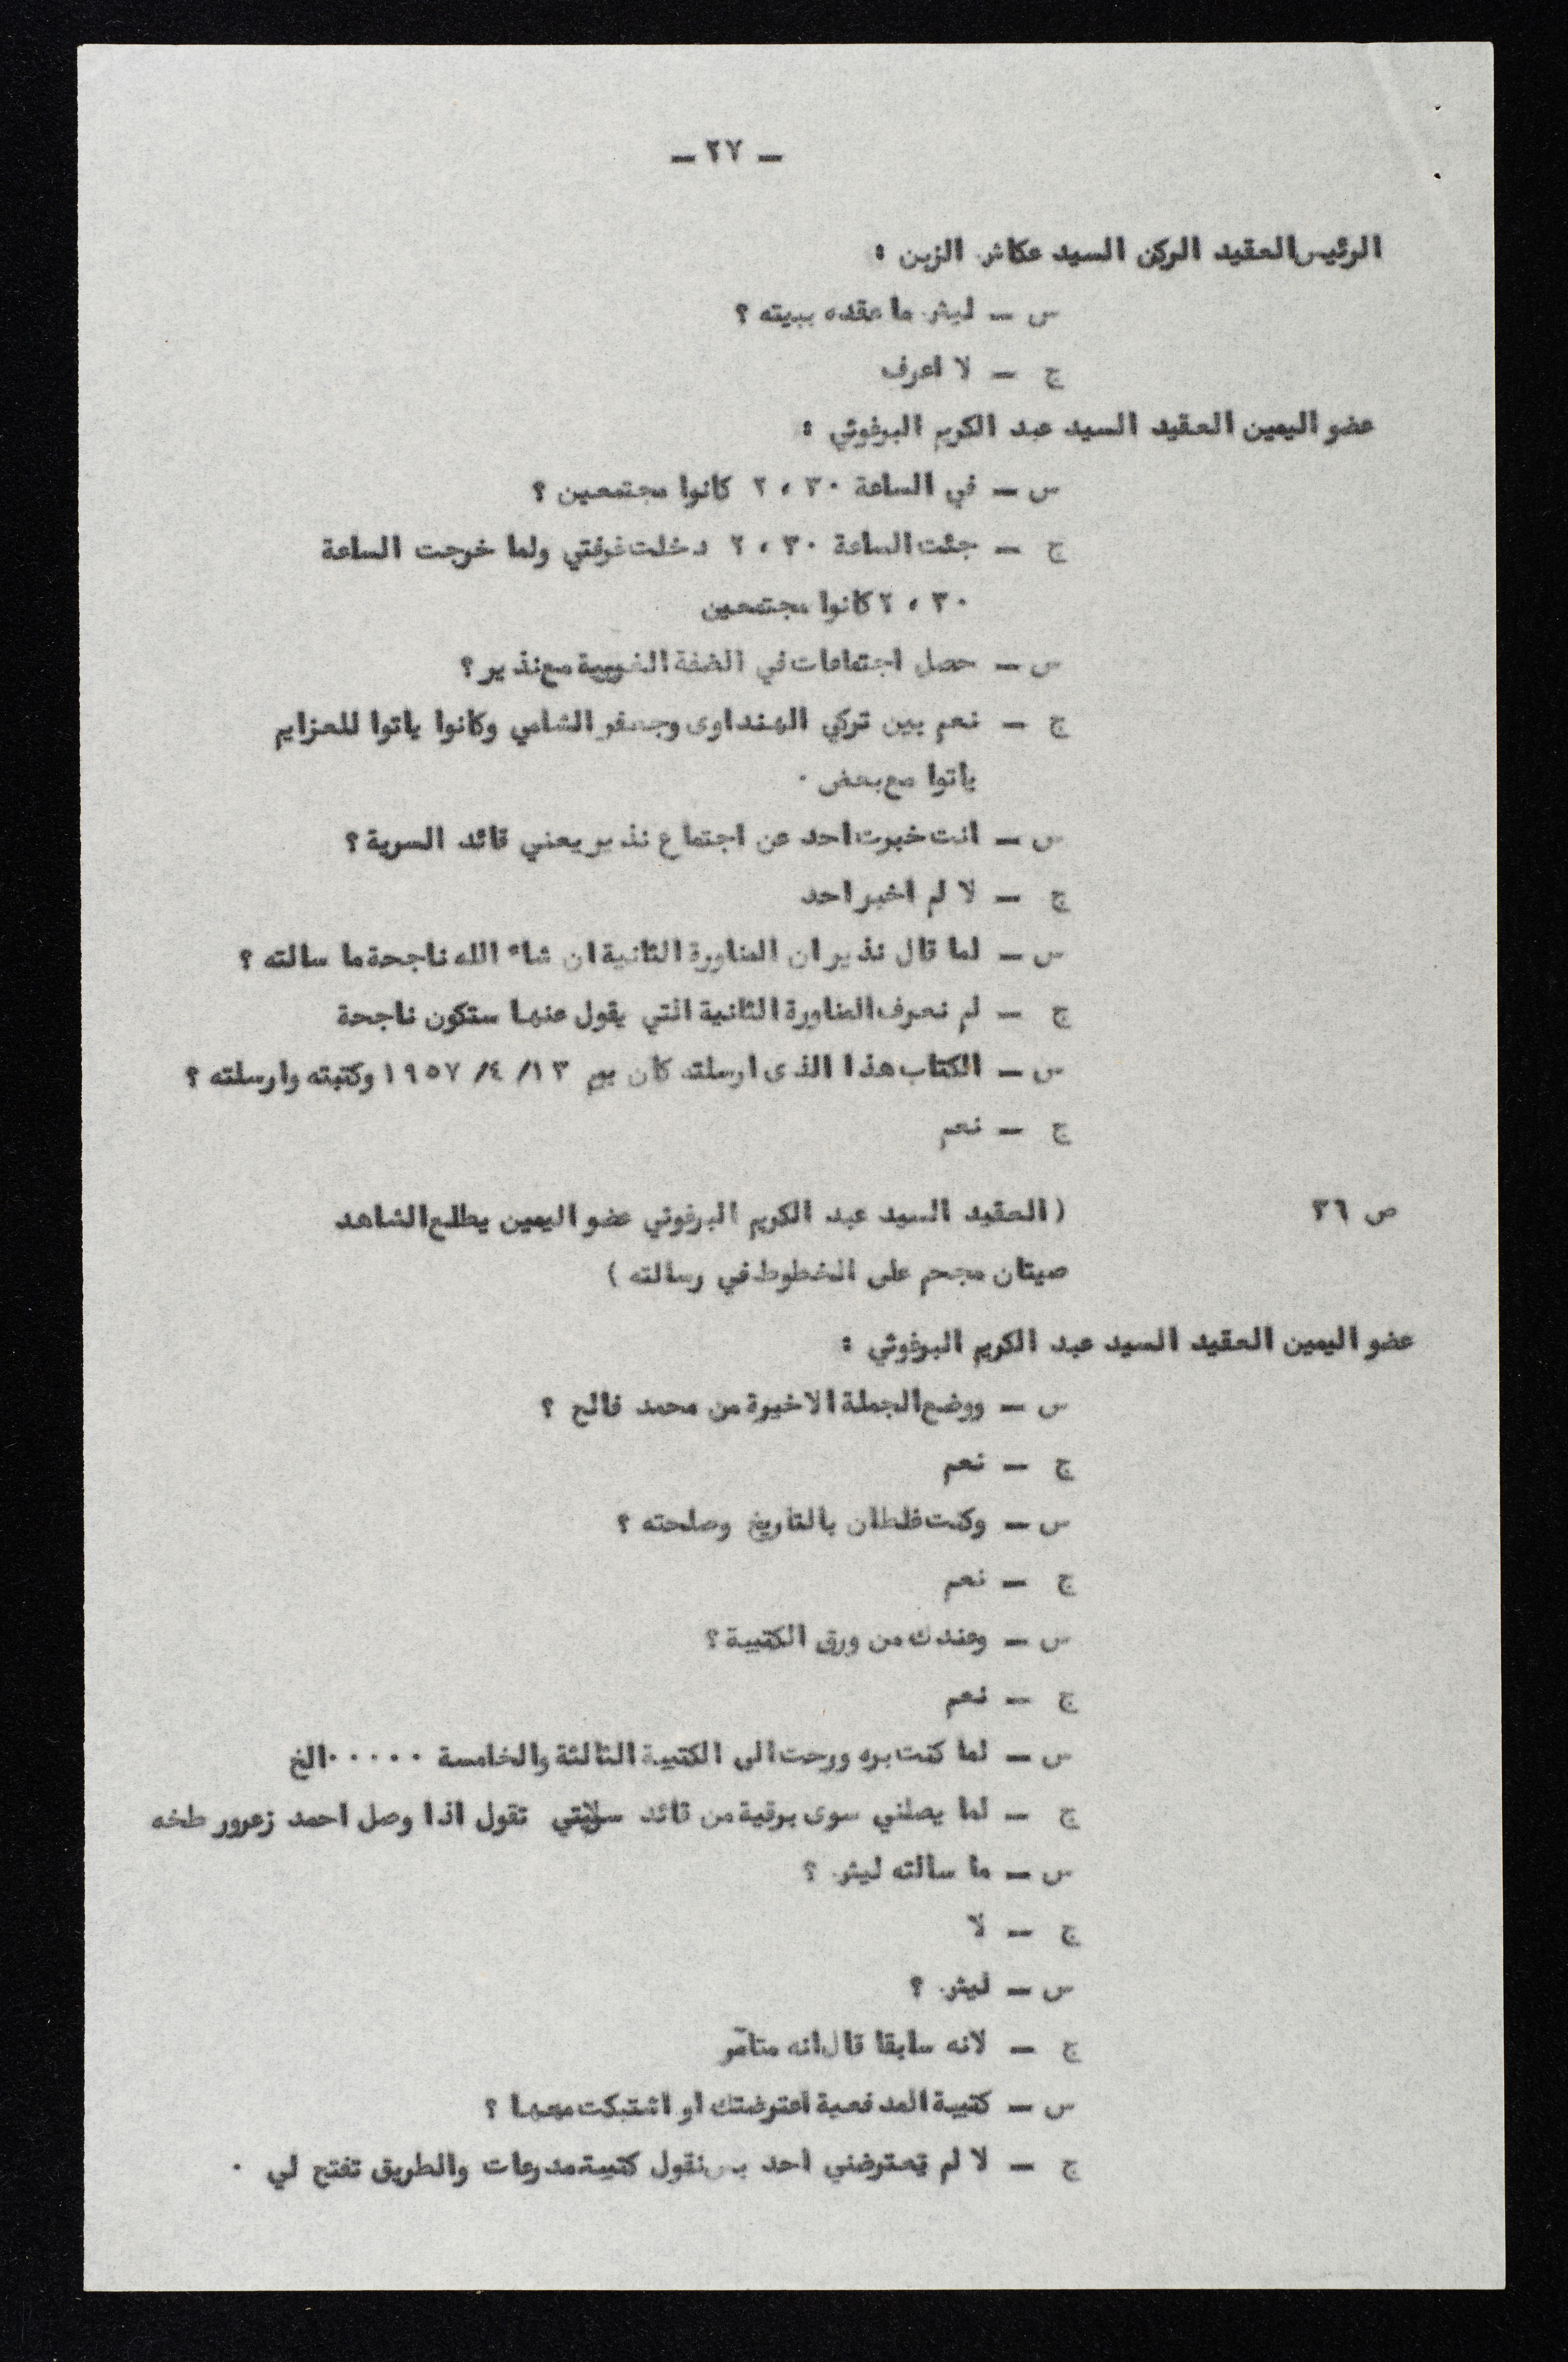 ـ ٢٧ ـ
الرئيس العقيد الركن السيد عكاش الزبن :
س ـ ليش ما عقده ببيته ؟
ج ـ لا اعرف
عضو اليمين العقيد السيد عبد الكريم البرغوثي :
س ـ في الساعة ٣٠ ، ٢ كانوا مجتمعين ؟
ج ـ جئت الساعة ٣٠ ، ٢ دخلت غرفتي ولما خرجت الساعة
٣٠ ، ٢ كانوا مجتمعين
س ـ حصل اجتماعات في الضفة الغربية مع نذير ؟
ج ـ نعم بين تركي الهنداوى وجعفر الشامي وكانوا ياتوا للعزايم
ياتوا مع بعض .
س ـ انت خبرت احد عن اجتماع نذير يعني قائد السرية ؟
ج ـ لا لم اخبر احد
س ـ لما قال نذير ان المناورة الثانية ان شاء الله ناجحة ما سالته ؟
ج ـ لم نعرف المناورة الثانية التي يقول عنها ستكون ناجحة
س ـ الكتاب هذا الذى ارسلته كان يوم ١٣/ ٤/ ١٩٥٧ وكتبته وارسلته ؟
ج ـ نعم
ص ٣٦ ( العقيد السيد عبد الكريم البرغوثي عضو اليمين يطلع الشاهد
صيتان مجحم على الخطوط في رسالته )
عضو اليمين العقيد السيد عبد الكريم البرغوثي :
س ـ ووضع الجملة الاخيرة من محمد فالح ؟
ج ـ نعم
س ـ وكنت غلطان بالتاريخ وصلحته ؟
ج ـ نعم
س ـ وعندك من ورق الكتيبة ؟
ج ـ نعم
س ـ لما كنت بره ورحت الى الكتيبة الثالثة والخامسة ٠٠٠٠٠ الخ
ج ـ لما يصلني سوى برقية من قائد تقول اذا وصل احمد زعرور طخه
س ـ ما سالته ليش ؟
ج ـ لا
س ـ ليش ؟
ج ـ لانه سابقا قال انه متآمر
س ـ كتيبة المدفعية اعترضتك او اشتبكت معها ؟
ج ـ لا لم يعترضني احد بس نقول كتيبة مدرعات والطريق تفتح لي .